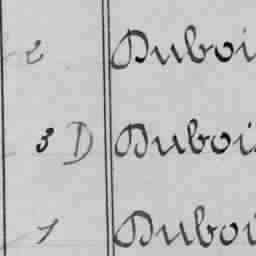 2 Duboi
3 D Dubois
1 Duboi